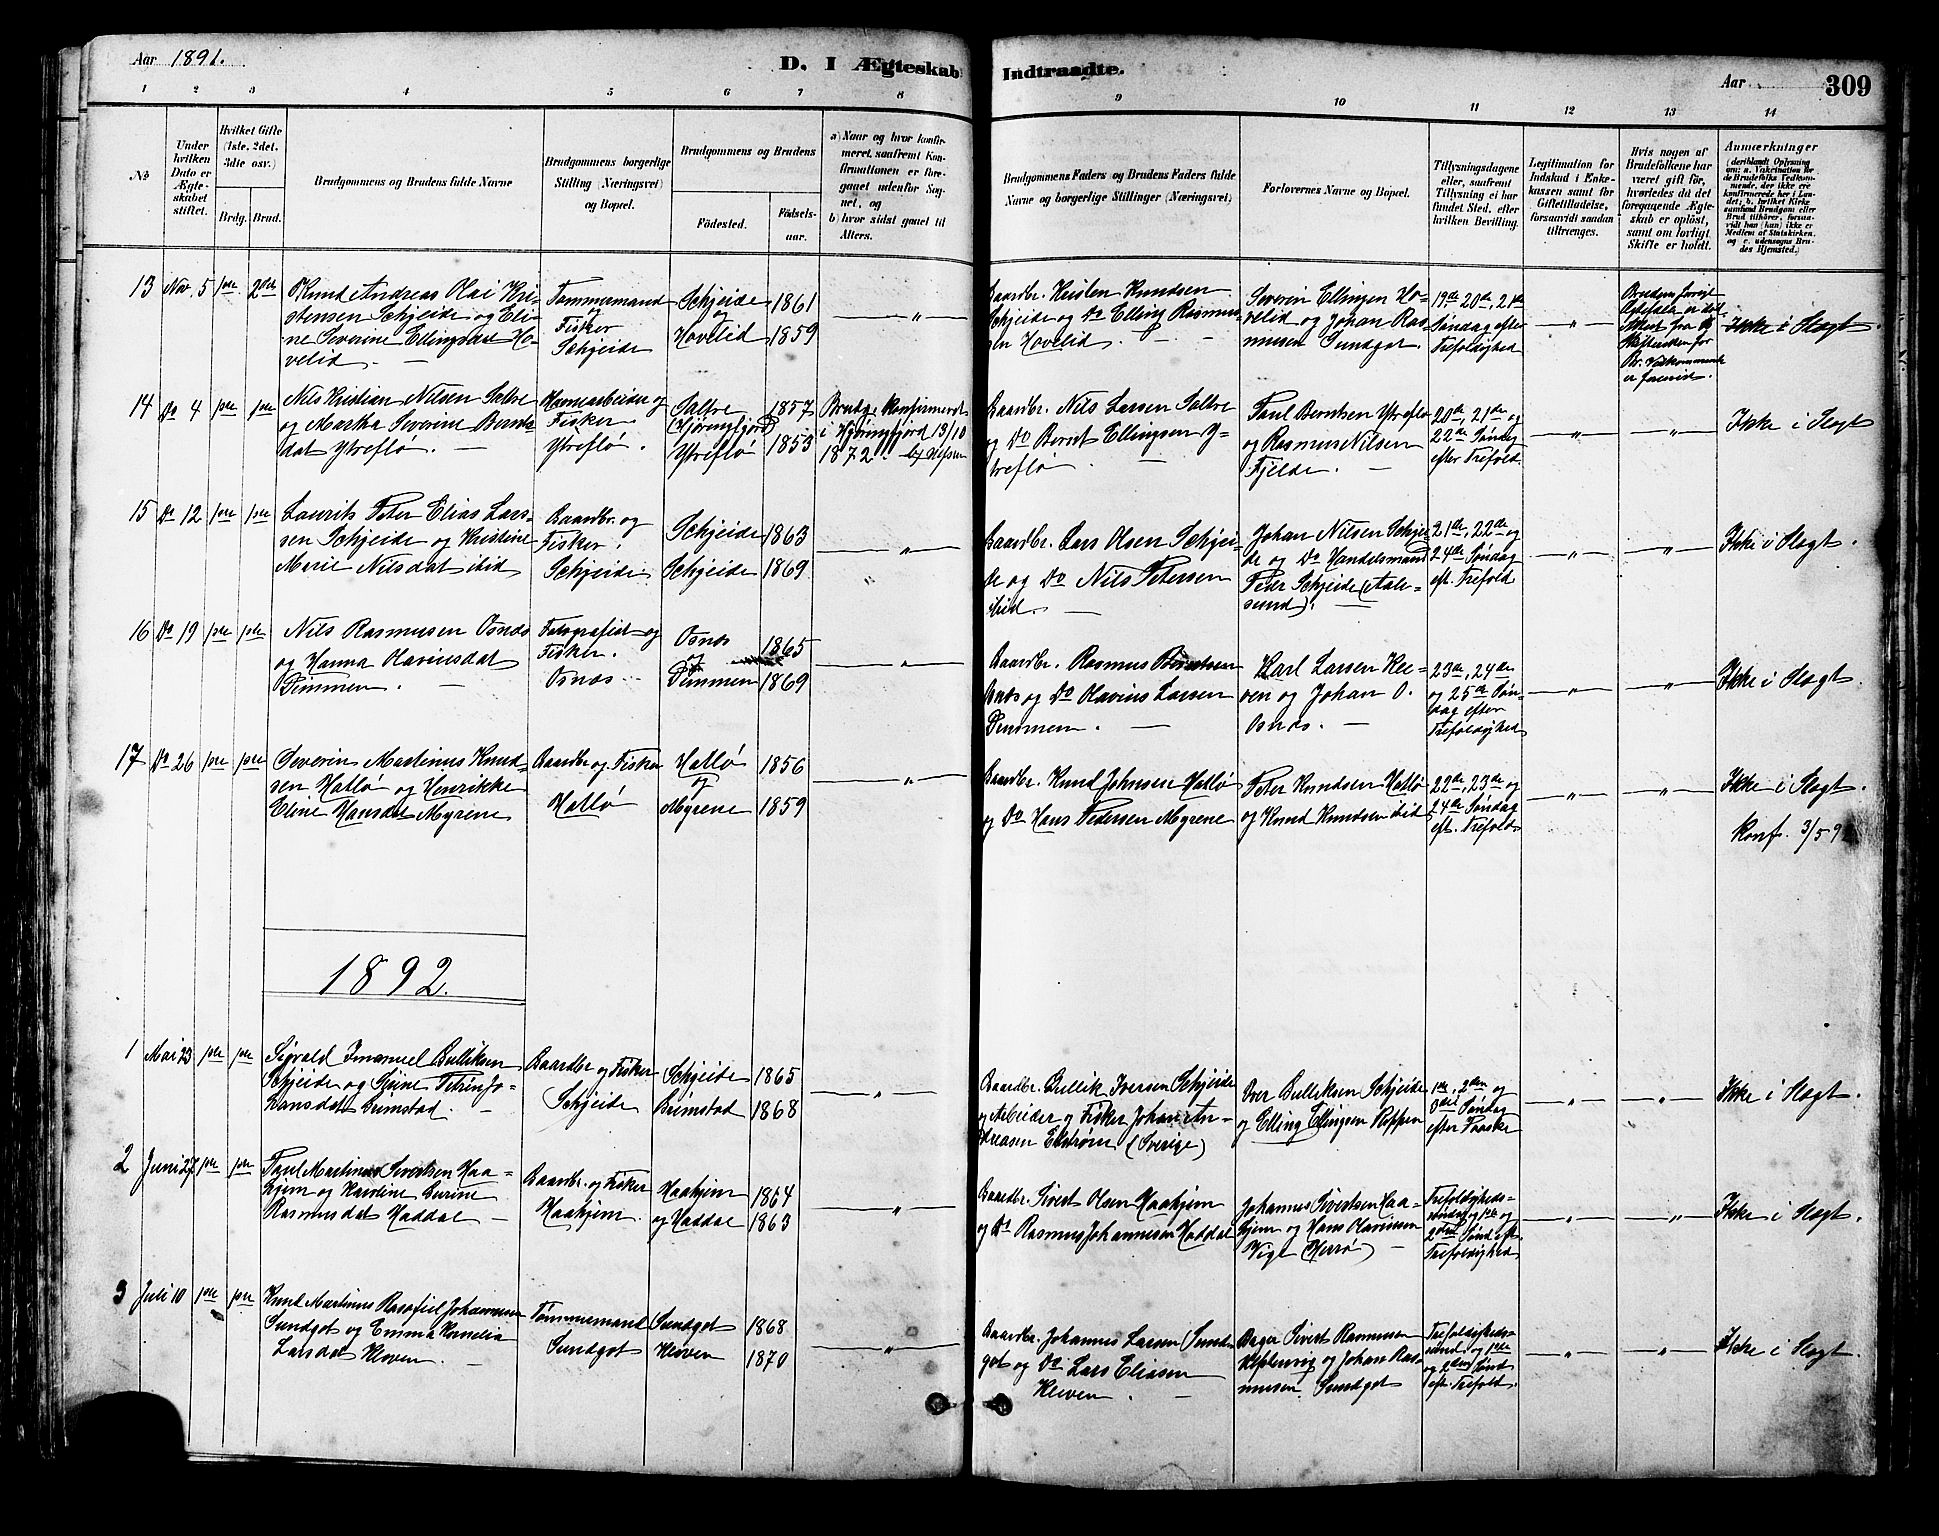 Aar 1891.
D. I Ægteskab Indtraadte.
Aar
309
1 2 3 4 5 6 7 8 9 10 11 12 13 14
No
Under hvilken Dato er Ægteskabet stiftet.
Hvilket Gifte (1ste, 2det, 3dte osv.)
Brdg. Brud.
Brudgommens og Brudens fulde Navne
Brudgommens borgerlige Stilling (Næringsvei) og Bopæl.
Brudgommens og Brudens
Födested.
Födsels-aar.
a) Naar og hvor konfirmeret, saafremt Konfirmationen er foregaaet udenfor Sognet, og
b) hvor sidst gaaet til Alters.
Brudgommens Faders og Brudens Faders fulde Navne og borgerlige Stillinger (Næringsvei)
Forlovernes Navne og Bopæl.
Tillysningsdagene eller, saafremt Tillysning ei har fundet Sted, efter hvilken Bevilling.
Legitimation for Indskud i Enkekassen samt for Giftetilladelse, forsaavidt saadan tiltrænges.
Hvis nogen af Brudefolkene har været gift för, hvorledes da det foregaaende Ægteskab er oplöst, samt om lovligt Skifte er holdt.
Anmærkninger
13 Nov. 5 1ste 2det
Knud Andreas Olai Kristensen Schjeide og Eline Severine Ellingsdat Hovelid.
Tømmermand og Fisker Schjeide
Schjeide og Hovelid
1861
1859
Baardbr. Kristen Knudsen Schjeide og Do Elling Rasmussen Hovelid.
Severin Ellingsen Hovelid og Johan Rasmusen Sundgot.
19de, 20de, 21de Søndag efter Trefoldighed
Ikke i Slægt.
14 Do 4 1ste 1ste
Nils Kristian Nilsen Saltre og Martha Severine Berntsdat Ytreflø.
Havnearbeider og Fisker. Ytreflø.
Saltre (Hjørungfjord) Ytreflø
1857
1853
Brudg. konfirmeret i Hjørungfjord 13/10 1872.
Baardbr. Nils Larsen Saltre og Do Bernt Ellingsen Ytreflø
Paul Berntsen Ytreflø og Rasmus Nilsen Fjelde.
20de, 21de og 22de Søndag efter Trefold.
Ikke i Slægt
15 Do 12 1ste 1ste
Laurits Peter Elias Larssen Schjeide og Kristine Marie Nilsdat ibid
Baardbr. og Fisker. Schjeide
Schjeide
Schjeide
1863
1869
Baardbr. Lars Olsen Schjeide og Do Nils Petersen ibid.
Johan Nilsen Schjeide og Do Handelsmand Peter Schjeide (Aalesund).
21de, 22de og 24de Søndag eft. Trefold
Ikke i Slægt.
16 Do 19 1ste 1ste
Nils Rasmusen Osnæs og Hanna Olavinesdat Dimmen.
Fotografist og Fisker. Osnæs
Osnæs og Dimmen
1865
1869
Baardbr. Rasmus Berntsen Osnæs og Do Olavius Larsen Dimmen.
Karl Larsen Kleven og Johan O. Osnæs.
23de, 24de og 25de Søndag efter Trefoldighed
Ikke i Slægt
17 Do 26 1ste 1ste
Severin Martinus Knudsen Hatlø og Henrikke Eline Hansdat Myrene
Baardbr og Fisker Hatlø
Hatlø og Myrene
1856
1859
Baardbr. Knud Johnsen Hatlø og Do Hans Pedersen Myrene
Peter Knudsen Hatlø og Knud Knudsen ibid
22de, 23de og 24de Søndag eft. Trefold
Ikke i Slægt.
Konf. 3/59
1892.
1 Mai 23 1ste 1ste
Sigvald Imanuel Bulliksen Schjeide og Sine Petrin Johansdat Brimstad.
Baardbr og Fisker Schjeide
Schjeide Brimstad
1865
1868
Baardbr. Bullik Iversen Schjeide og Arbeider og Fisker Johan Andreasen Ekstrøm (Sverige)
Iver Bulliksen Schjeide og Elling Ellingsen Roppen
1ste, 2den og 3die Søndag efter Paaske
Ikke i Slægt.
2 Juni 27 1ste 1ste
Paul Martinus Sivertsen Haahjem og Karoline Burine Rasmusdat Haddal
Baardbr. og Fisker Haahjem.
Haahjem og Haddal
1864
1863
Baardbr. Sivert Olsen Haahjem og Do Rasmus Johannesen Haddal
Johannes Sivertsen Haahjem og Hans Olavinsen Vigt (Herrø)
Trefoldighedssøndag og 1ste og 2den Sønd. eft. Trefoldighed
Ikke i Slægt.
3 Juli 10 1ste 1ste
Knud Martinus Rasofiel Johannesen Sundgot og Emma Kornelia Larsdat Kleven.
Tømmermand Sundgot
Sundgot Kleven
1868
1870
Baardbr. Johannes Larsen Sundgot og Do Lars Eliasen Kleven.
Bager Sivert Rasmusen og Johan Rasmusen Sundgot
Trefoldighedssønd. og 1ste og 2den Sønd. eft. Trefold.
Ikke i Slægt.